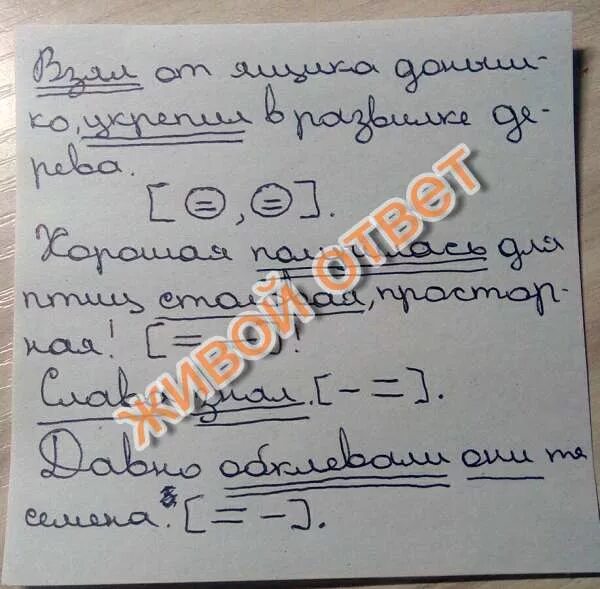 Взял от ящика доныш-
ко, укрепил в развилке де-
рева.
[=, =].
Хорошая получилась для
птиц столовая, простор-
ная! [= -]!
Слава знал. [- =].
Давно обклевали они те
семена. [= -].
ЖИВОЙ ОТВЕТ